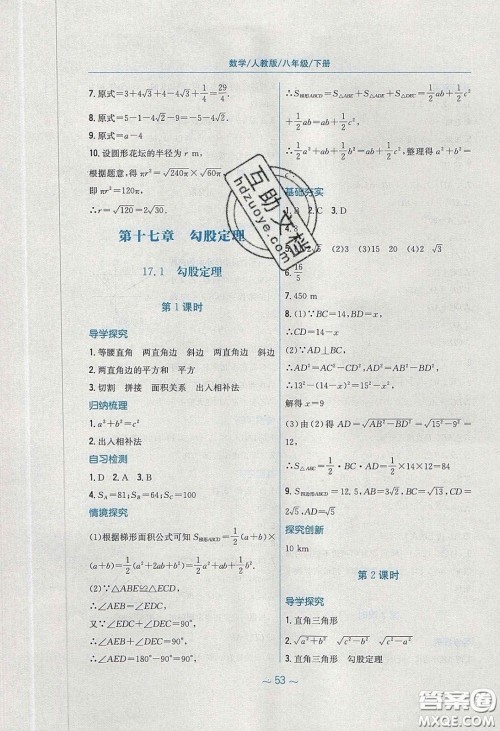 数学/人教版/八年级/下册
7. 原式=3+4√3+4-4√3+1/4=29/4.
8. 原式=-5-4√5-9=-5-4√5.
9. 原式=a-4
10. 设圆形花坛的半径为 r m,
根据题意,得 πr²=√240π×√60π,
即 πr²=120π,
∴r=√120=2√30.
第十七章 勾股定理
17.1 勾股定理
第 1 课时
导学探究
1. 等腰直角 两直角边 斜边 两直角边 斜边
2. 两直角边的平方和 平方
3. 切割 拼接 面积关系 出入相补法
归纳梳理
1. a²+b²=c²
2. 出入相补法
自习检测
1. D 2. A 3. B
4. S_A=81; S_B=64; S_C=100
情境探究
(1)根据梯形面积公式可知 S梯形ABCD=1/2(a+b)×
(a+b)=1/2(a²+2ab+b²)=1/2(a+b)²
(2)∵△ABE≌△ECD,
∴∠AEB=∠EDC,
又∵∠EDC+∠DEC=90°,
∴∠AEB+∠DEC=90°,
∴∠AED=180°-90°=90°,
∴S梯形ABCD=S△ABE+S△DEC+S△AED=1/2ab+1/2c²
+1/2ab=ab+1/2c²,
∴1/2a²+ab+1/2b²=ab+1/2c²,整理得 a²+b²=
基础夯实
1. B 2. C 3. D
√5 (2)3 15 20 (4)2 √3
6. 16/5
7. 450 m
8. (1)∵BC=14,BD=x,
∴CD=14-x
(2)∵AD⊥BC,
∴AD²=AC²-CD²,AD²=AB²-BD²,
∴13²-(14-x)²=15²-x²,
解得 x=9
(3)由(2)得 AD=√AB²-BD²=√15²-9²=12,
∴S△ABC=1/2·BC·AD=1/2×14×12=84
9. S四边形ABCD=12.5,AB=3√2,BC=√13,CD=2√2,
AD=√5
探究创新
10 km
第 2 课时
导学探究
1. 直角三角形
2. √a²+b² √c²-b² √c²-a²
3. 直角三角形 勾股定理
～ 53 ～
互助文档
hdzuoye.com
答案圈
MXQE.COM